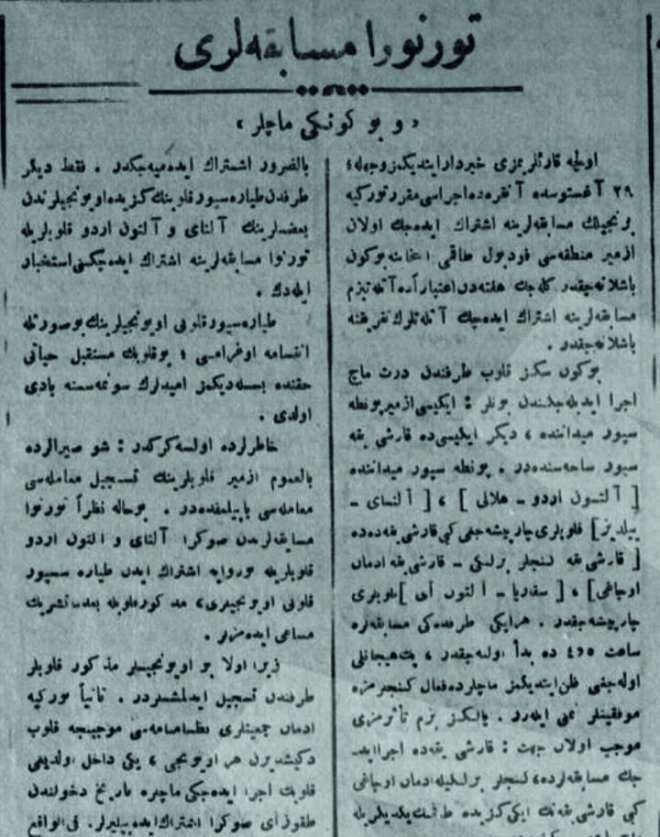 تورنووا مسابقه‌لری
« و بو كونكی ماچلر »
اولجه قارئلریمزی خبردار ایتدیكمز وجهله ؛
۲۹ آغستوسده آنقره‌ده اجراسی مقرر توركیه
برنجیلك مسابقه‌لرینه اشتراك ایده‌جك اولان
ازمیر منطقه‌سی فودبول طاقمی انتخابنه بوكون
باشلانه‌جقدر كله‌جك هفته‌دن اعتباراً ده آتله‌تیزم
مسابقه‌لرینه اشتراك ایده‌جك آتله‌تلرك تفریقنه
باشلانه‌جقدر .
بوكون سكز قلوب طرفندن درت ماچ
اجرا ایدیله‌جكدن بونلر : ایكیسی ازمیر پونطه
سپور میداننده ، دیكر ایكیسی ده قارشی یقه
سپور ساحه‌سنده‌در . پونطه سپور میداننده
[ آلتون اردو ـ هلالی ] ، [ آلتای ـ
ییلدیز ] قلوبلری چارپیشه‌جغی كبی قارشی یقه‌ده‌ده
[ قارشی یقه كنجلر برلكی ـ قارشی یقه ادمان
اوجاغی ] ، [ سقاریا ـ آلتون آی ] قلوبلری
چارپیشه‌جقدر . هر ایكی طرفده‌كی مسابقه‌لره
ساعت ده بدأ اوله‌جقدر ، پك هیجانلی
اوله‌جغی ظن ایتدیكمز ماچلرده فعال كنجلرمزه
موفقیتلر تمنی ایده‌رز . یالكز بزم تأثرمزی
موجب اولان جهت : قارشی یقه‌ده اجرا ایدیله‌ـ
جك مسابقه‌لرده ، كنجلر برلكیله ادمان اوجاغی
كبی قارشی یقه‌نك ایكی كزیده طرفك یكدیكریله
بالضرور اشتراك ایده‌میه‌جكدر . فقط دیكر
طرفدن طیاره سپور قلوبنك كزیده اویونجیلرندن
بعضیلرینك آلتای و آلتون اردو قلوبلریله
تورنووا مسابقه‌لرینه اشتراك ایده‌جكنی استخبار
ایله‌دك .
طیاره سپور قلوبی اویونجیلرینك بو صورتله
انقسامه اوغرامسی ؛ بو قلوبك مستقبل حیاتی
حقنده بسله‌دیكمز امیدلرك سونمه‌سنه بادی
اولدی .
خاطرلرده اولسه كركدر : شو صیرالرده
بالعموم ازمیر قلوبلرینك تسجیل معامله‌سی
معامله‌سی یاپیلمقده‌در . بو حاله نظراً تورنووا
مسابقه‌لرندن صوكرا آلتای و آلتون اردو
قلوبلریله تورنووایه اشتراك ایدن طیاره سپور
قلوبی اویونجیلری ، مذكور قلوبله بعدما تشریك
مساعی ایده‌مزلر .
زیرا اولا بو اویونجیلر مذكور قلوبلر
طرفندن تسجیل ایدلمشلردر . ثانیاً توركیه
ادمان جمعیتلری نظامنامه‌سی موجبنجه قلوب
دكیشدیرن هر اویونجی ، یكی داخل اولدیغی
قلوبك اجرا ایده‌جكی ماچلره تاریخ دخولندن
طقوز آی صوكرا اشتراك ایده‌بیلیرلر . فی الواقع